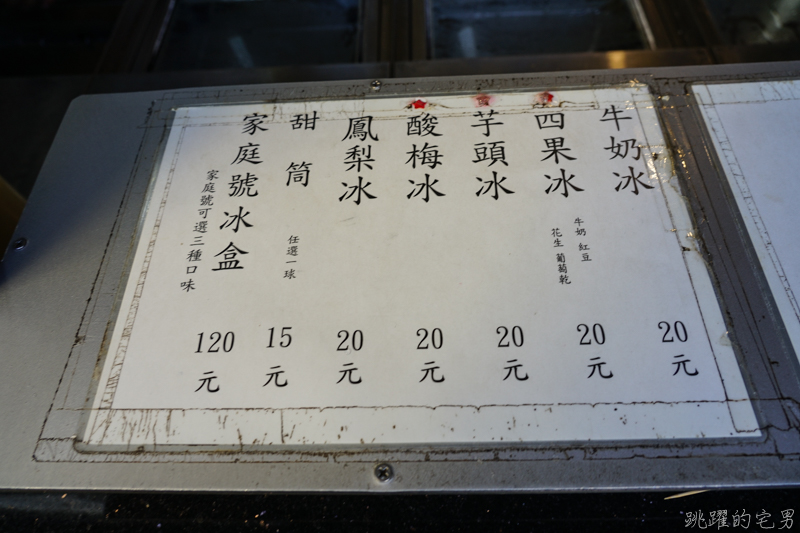 牛奶冰
20元
四果冰
牛奶 紅豆
花生 葡萄乾
20元
芋頭冰
20元
酸梅冰
20元
鳳梨冰
20元
甜筒
任選一球
15元
家庭號冰盒
家庭號可選三種口味
120元
跳躍的宅男